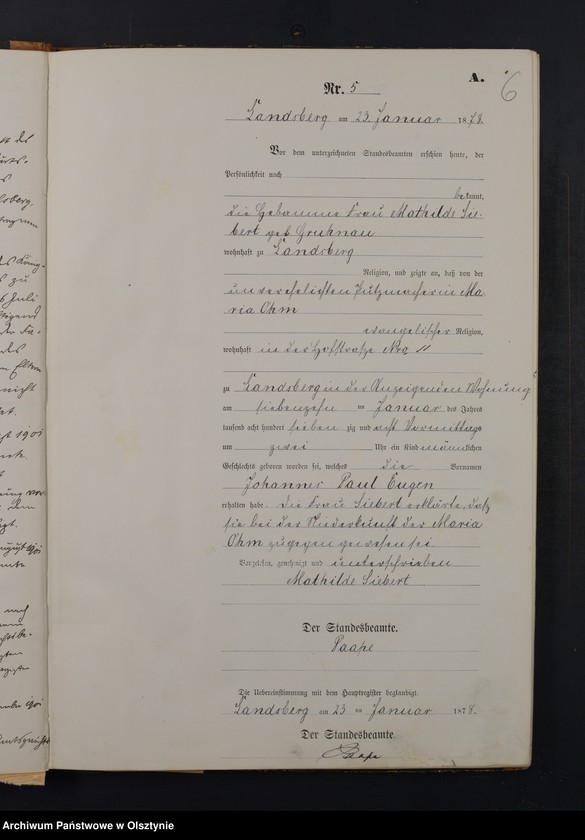 A.
6
Nr. 5
Landsberg am 23. Januar 1878.
Vor dem unterzeichneten Standesbeamten erschien heute, der
Persönlichkeit nach
bekannt,
die Hebamme Frau Mathilde Sie-
bert geb Gruhnau
wohnhaft zu Landsberg
Religion, und zeigte an, daß von der
unverehelichten Putzmacherin Ma
ria Ohm
evangelischer Religion,
wohnhaft in der Hofstraße Nro 11
zu Landsberg in der Anzeigenden Wohnung
am siebenzehn ten Januar des Jahres
tausend acht hundert sieben zig und acht Vormittags
um zwei Uhr ein Kind männlichen
Geschlechts geboren worden sei, welches die Vornamen
Johannes Paul Eugen
erhalten habe. Die Frau Siebert erklärte, daß
sie bei der Niederkunft der Maria
Ohm zugegen gewesen sei
Vorgelesen, genehmigt und unterschrieben
Mathilde Siebert
Der Standesbeamte.
Paape
Die Uebereinstimmung mit dem Hauptregister beglaubigt.
Landsberg am 23 ten Januar 1878.
Der Standesbeamte
Paape
Archiwum Państwowe w Olsztynie